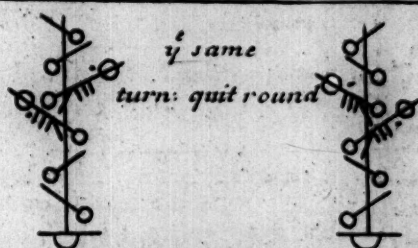 yͤ same
turn: quit round